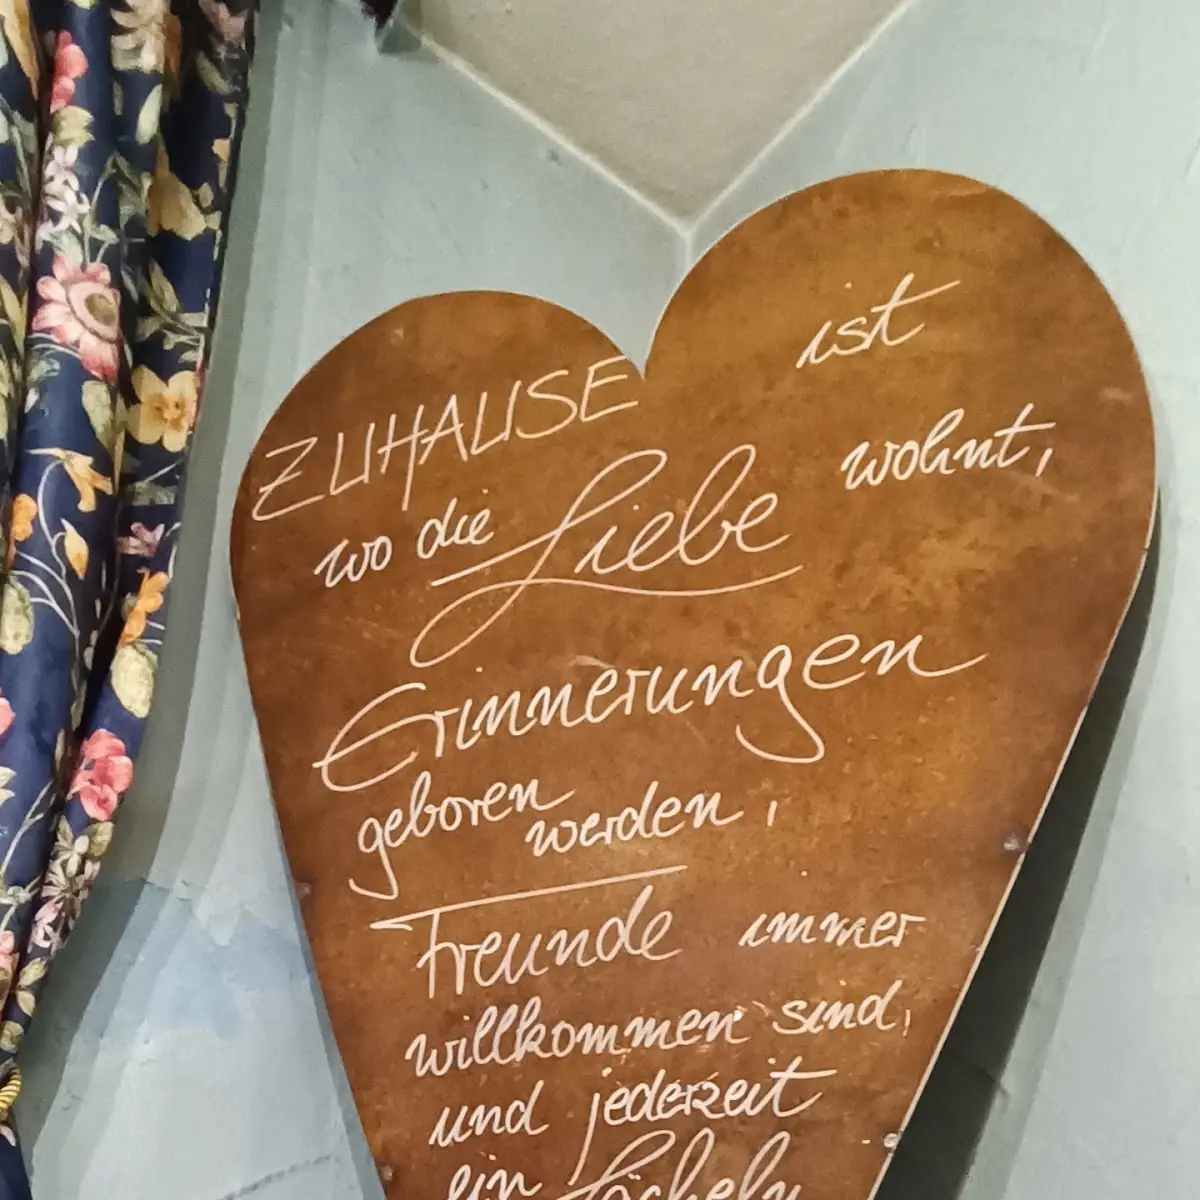 ZUHAUSE ist
wo die Liebe wohnt,
Erinnerungen
geboren
werden,
Freunde immer
willkommen sind,
und jederzeit
ein Lächeln